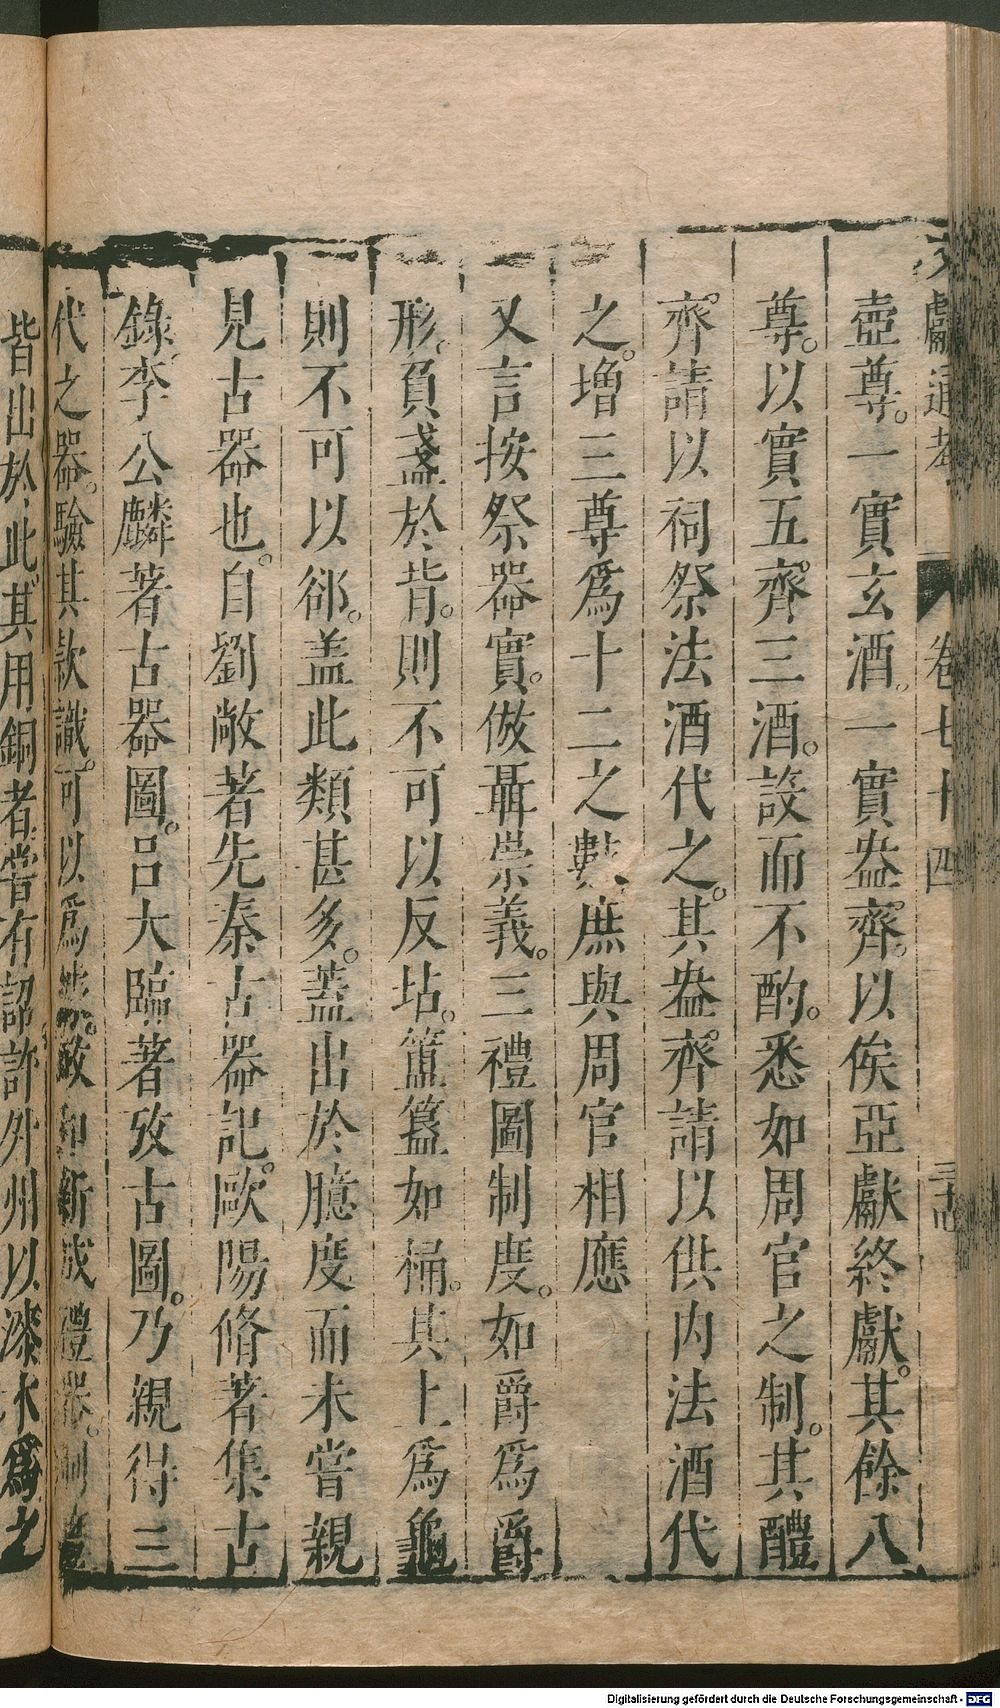 文獻通考 卷七十四 三十四
壺尊。一實玄酒。一實盎齊。以俟亞獻終獻。其餘八
尊。以實五齊三酒。設而不酌。悉如周官之制。其醴
齊請以祠祭法酒代之。其盎齊請以供內法酒代
之。增三尊爲十二之數庶與周官相應
又言按祭器實。倣聶崇義。三禮圖制度。如爵爲爵
形。負盞於背。則不可以反坫。簠簋如桶。其上爲龜
則不可以郤。盖此類甚多。蓋出於臆度而未嘗親
見古器也。自劉敞著先秦古器記。歐陽脩著集古
錄李公麟著古器圖。呂大臨著攷古圖。乃親得三
代之器。驗其款識。可以爲據。政和新成禮器。制度
皆出於此其用銅者嘗有詔許外州以漆木爲之
Digitalisierung gefördert durch die Deutsche Forschungsgemeinschaft - DFG